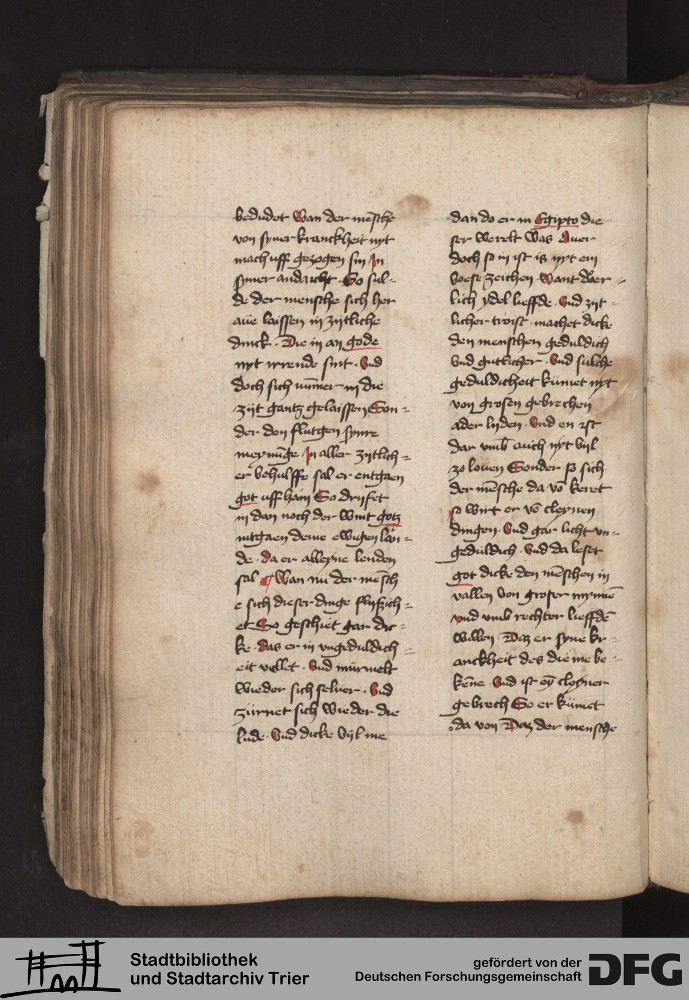 bedudet Wan der mēsche
von syner kranckheit nyt
mach uff gezogen sin In
syner andaicht · So sul-
de der mensche sich her
aūe laissen in zijtliche
dinck · Die in an gode
nyt irrende sint · Vnd
doch sich nūmer in die
zijt gantz gelaissen Son-
der den flutgen syme
meynūge In aller zijtlich-
er behulffe sal er entgaen
got uff ham So dryfet
in dan noch der wint gotz
intgaen deme ewigen lan-
de · da er alleyne lenden
sal Wan nū der mēsch
e sich dieser dinge flyszich-
et So geschiet gar dic-
ke · das er in ungeduldich-
eit vellet · Vnd mūrmelt
wieder sich seluer · Vnd
zürnet sich wieder die
lude · Vnd dicke vijl me
dan do er in Egipto die
ser werelt was Auer
doch so in ist is nyt ein
boese zeichen · Want
lich ydel lieffde · Vnd zijt-
licher troist · machet dick
den menschen geduldich
vnd gutlicher · Vnd sulche
geduldicheit kūmet nyt
von grosen gebrechen
ader lyden · Vnd en ist
dar vmb auch nyt vijl
zo louen Sonder so sich
der mēsche da vō keret
so wirt er vō cleynen
dingen · Vnd gar licht un-
geduldich · Vnd da leset
got dicke den mēschen in
vallen von groser mynnē
vnd vmb rechter lieffdē
willen · Daz er syne kr-
anckheit des die me be-
kēne · Vnd ist eȳ cleyner
gebrech So er kūmet
da von Daz der mensche
Stadtbibliothek
und Stadtarchiv Trier
gefördert von der
Deutschen Forschungsgemeinschaft
DFG